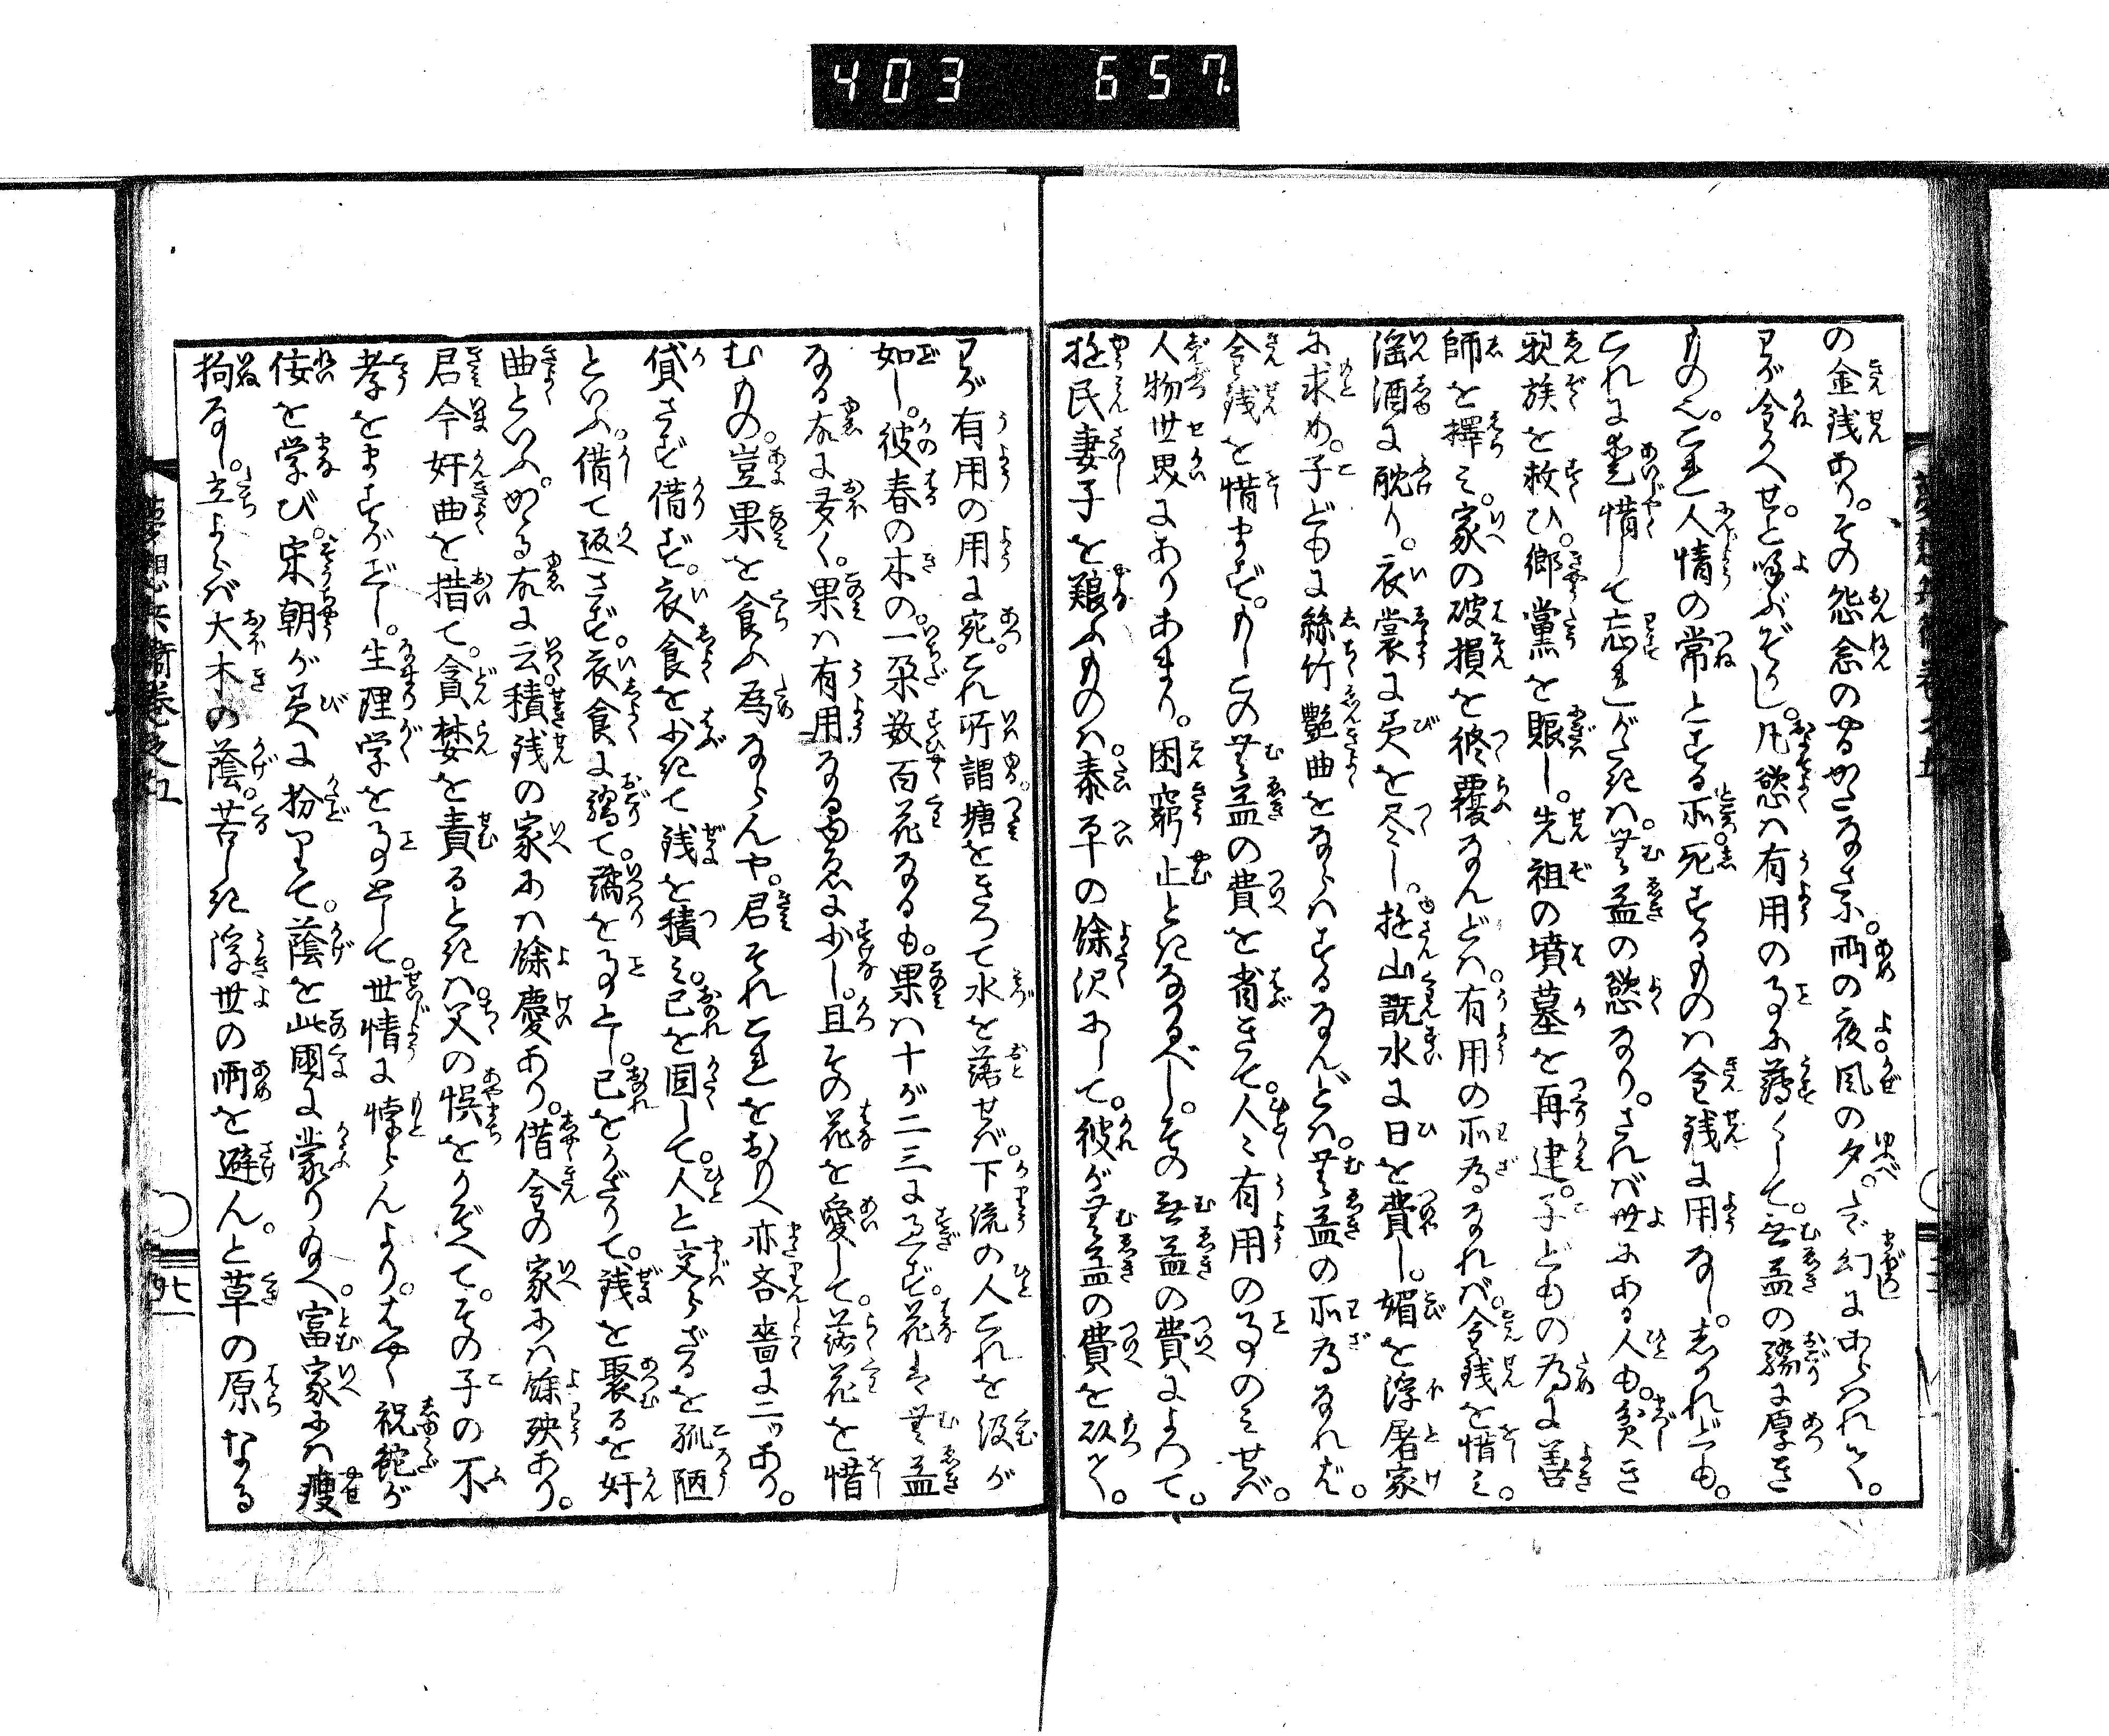 403 657
の金銭あり。その怨念のやるかたなさに。雨の夜風の夕。まぼろしにあらはれ出て。
わが金かへせと呼ぶぞかし。凡慾は有用の事に薄くして。無益の驕に厚き
ものなり。これ人情の常とする所。死するものは金銭に用なし。しかれども。
これに愛惜して忘れがたきは。無益の慾なり。されば世にある人も。貧き
親族を救ひ。郷黨を賑し。先祖の墳墓を再建。子どもの為に善
師を擇み。家の破損を修覆なんどは。有用の所為なれば。金銭を惜み。
淫酒に耽り。衣裳に美を尽し。遊山翫水に日を費し。媚を浮屠家
に求め。子どもに絲竹艶曲をならはするなんどは。無益の所為なれど。
金銭を惜まず。もしこの無益の費を省きて。人々有用の事のみせば。
人物世界にありあまり。困窮止ときなかるべし。その無益の費によつて。
遊民妻子を養ふものは。泰平の餘沢にして。彼が無益の費を
わが有用の用に宛。これ所謂塘をきつて水を落せば。下流の人これを汲が
如し。彼春の木の。一朶数百花なるも。果は十が二三に過ず。花は無益
なる故に多く。果は有用なるゆゑに少し。且その花を愛して。落花を惜
むもの。豈果を食ふ為ならんや。君それこれをおもへ亦吝嗇に二ッあり。
貸さず借ず。衣食を少きて銭を積み。己を固して。人と交らざるを孤陋
といふ。借て返さず。衣食に驕て。譌を事とし。己をかざりて。銭を聚るを奸
曲といふ。かゝる故に云積銭の家には餘慶あり。借金の家には餘殃あり。
君今奸曲を措て。貪婪を責るときは。父の悞をかぞへて。その子の不
孝をますがごとし。生理学を事として。世情に悖らんより。はやく祝鮀が
佞を学び。宋朝が美に扮りて。蔭を此國に蒙り給へ。富家には痩
狗なし。立よらば大木の蔭。苦しき浮世の雨を避ん。と草の原なる
夢想兵衛巻之五
廿一